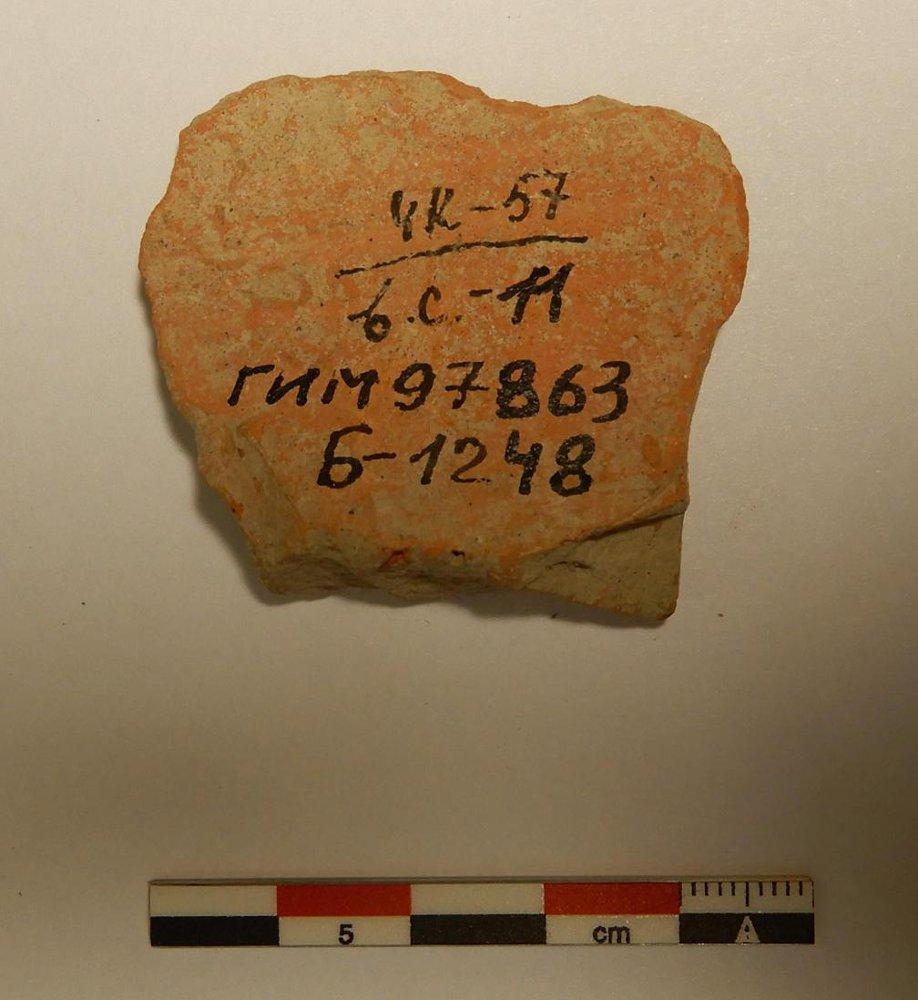 ЧК-57
в.с.-11
ГИМ 97863
Б-1248
5 cm